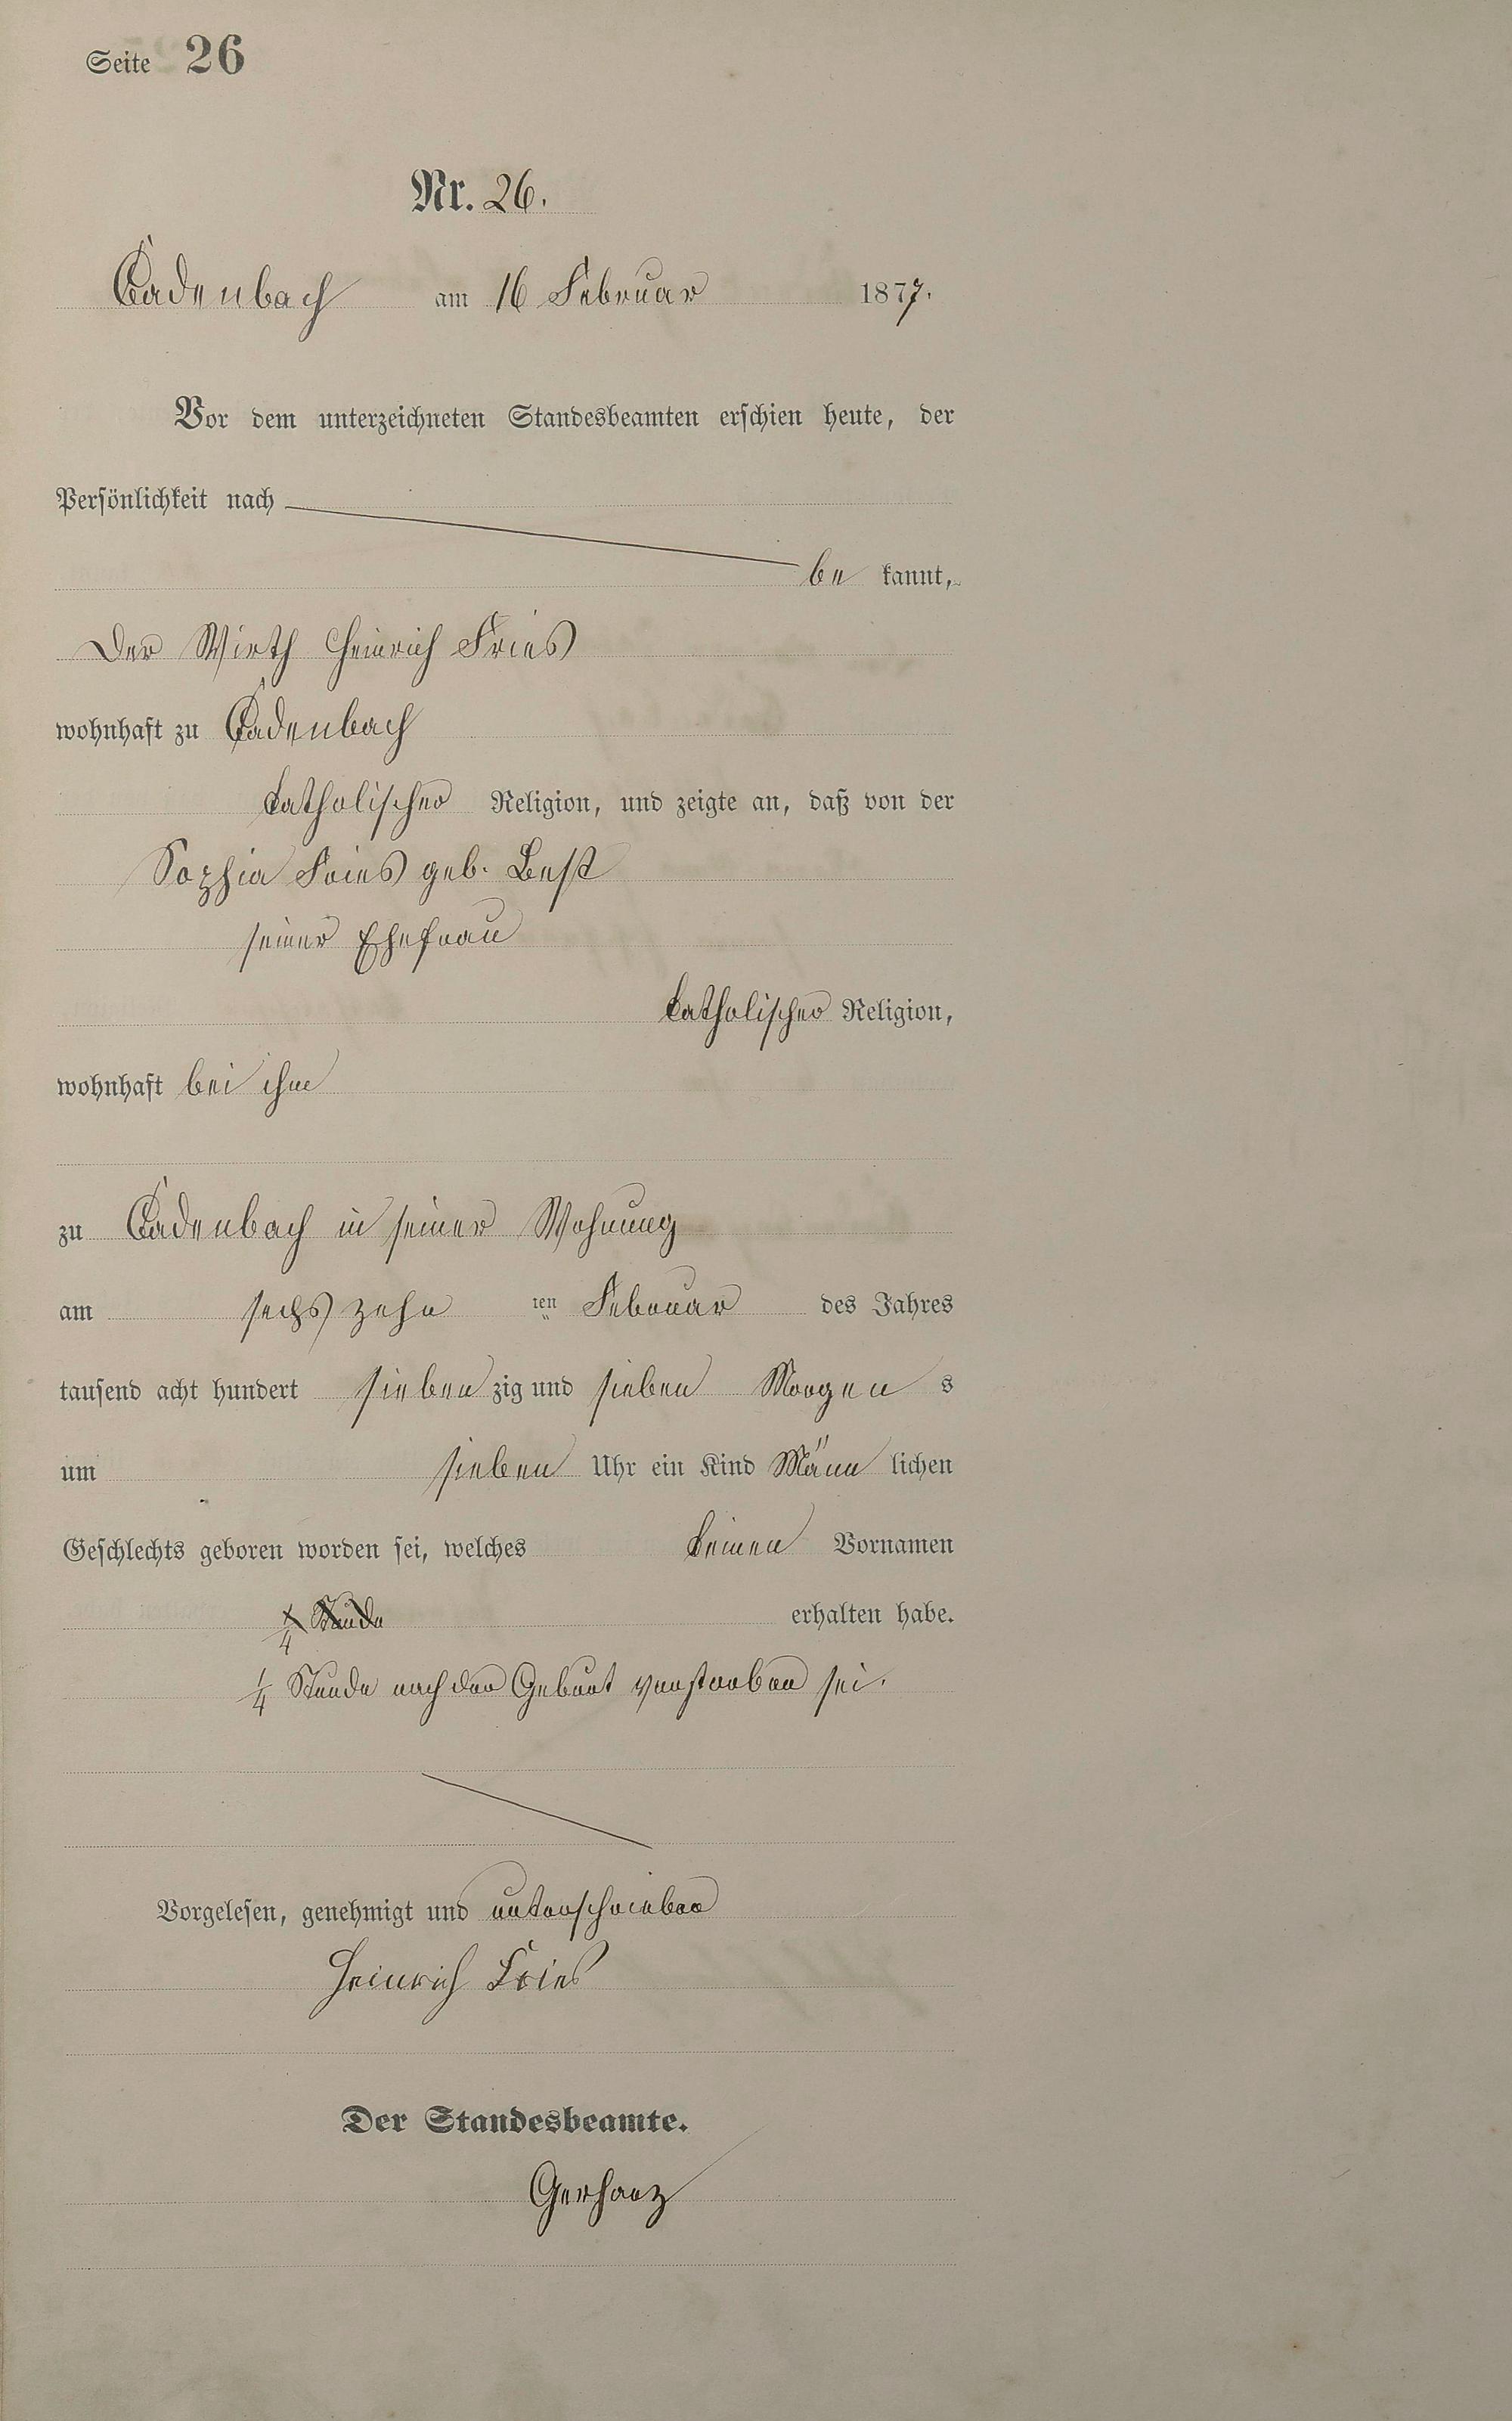 Seite 26
Nr. 26.
Cadenbach am 16 Februar 1877.
Vor dem unterzeichneten Standesbeamten erschien heute, der
Persönlichkeit nach
be kannt,
Der Wirth Heinrich Fries
wohnhaft zu Cadenbach
katholischer Religion, und zeigte an, daß von der
Sophia Fries geb. Best
seiner Ehefrau
katholischer Religion,
wohnhaft bei ihm
zu Cadenbach in seiner Wohnung
am sechszehn ten Februar des Jahres
tausend acht hundert sieben zig und sieben Morgen s
um sieben Uhr ein Kind Männ lichen
Geschlechts geboren worden sei, welches keinen Vornamen
1/4 Stunde erhalten habe.
1/4 Stunde nach der Geburt verstorben sei.
Vorgelesen, genehmigt und unterschrieben
Heinrich Fries
Der Standesbeamte.
Gerharz